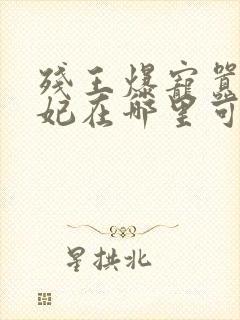 残王爆宠嚣
妃在哪里可
星拱北